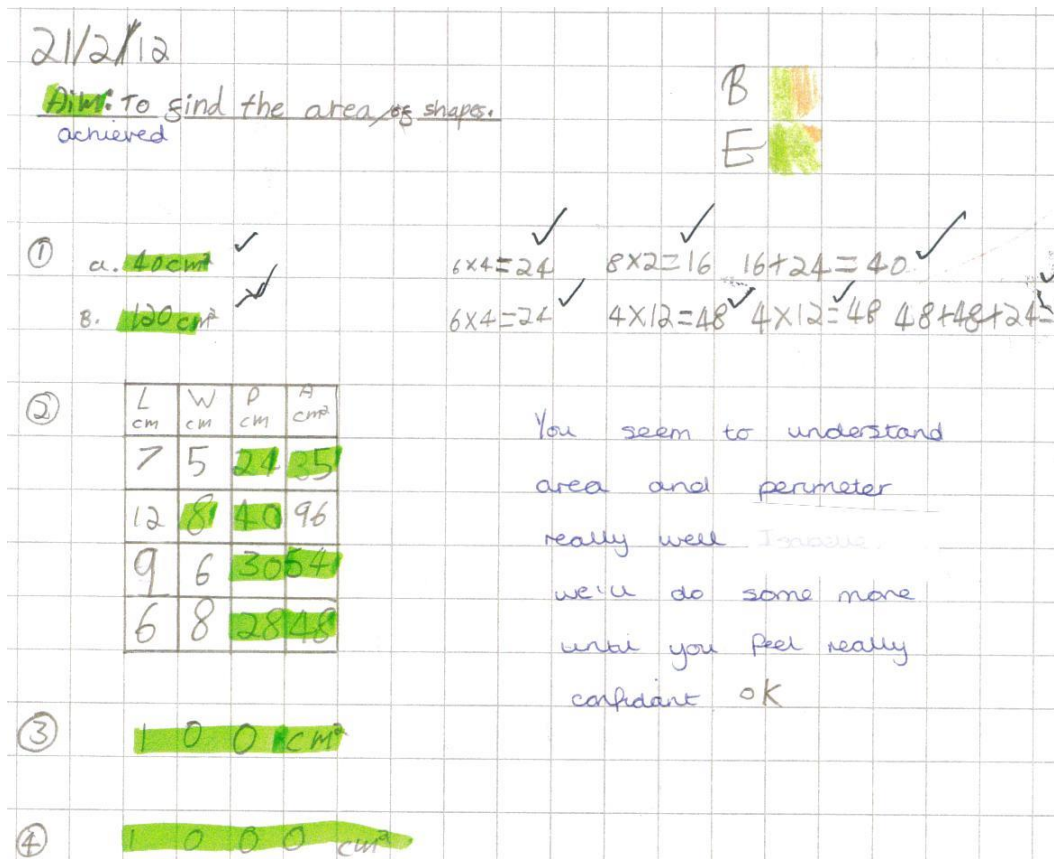 21/2/12
B
Aim: To find the area of shapes.
achieved
E
① a. 40cm² 6×4=24 8×2=16 16+24=40
B. 120cm² 6×4=24 4×12=48 4×12=48 48+48+24=
② L cm W cm P cm A cm²
7 5 24 35
12 8 40 96
9 6 30 54
6 8 28 48
You seem to understand
area and perimeter
really well
we'll do some more
until you feel really
confidant OK
③ 100 cm²
④ 1000 cm²